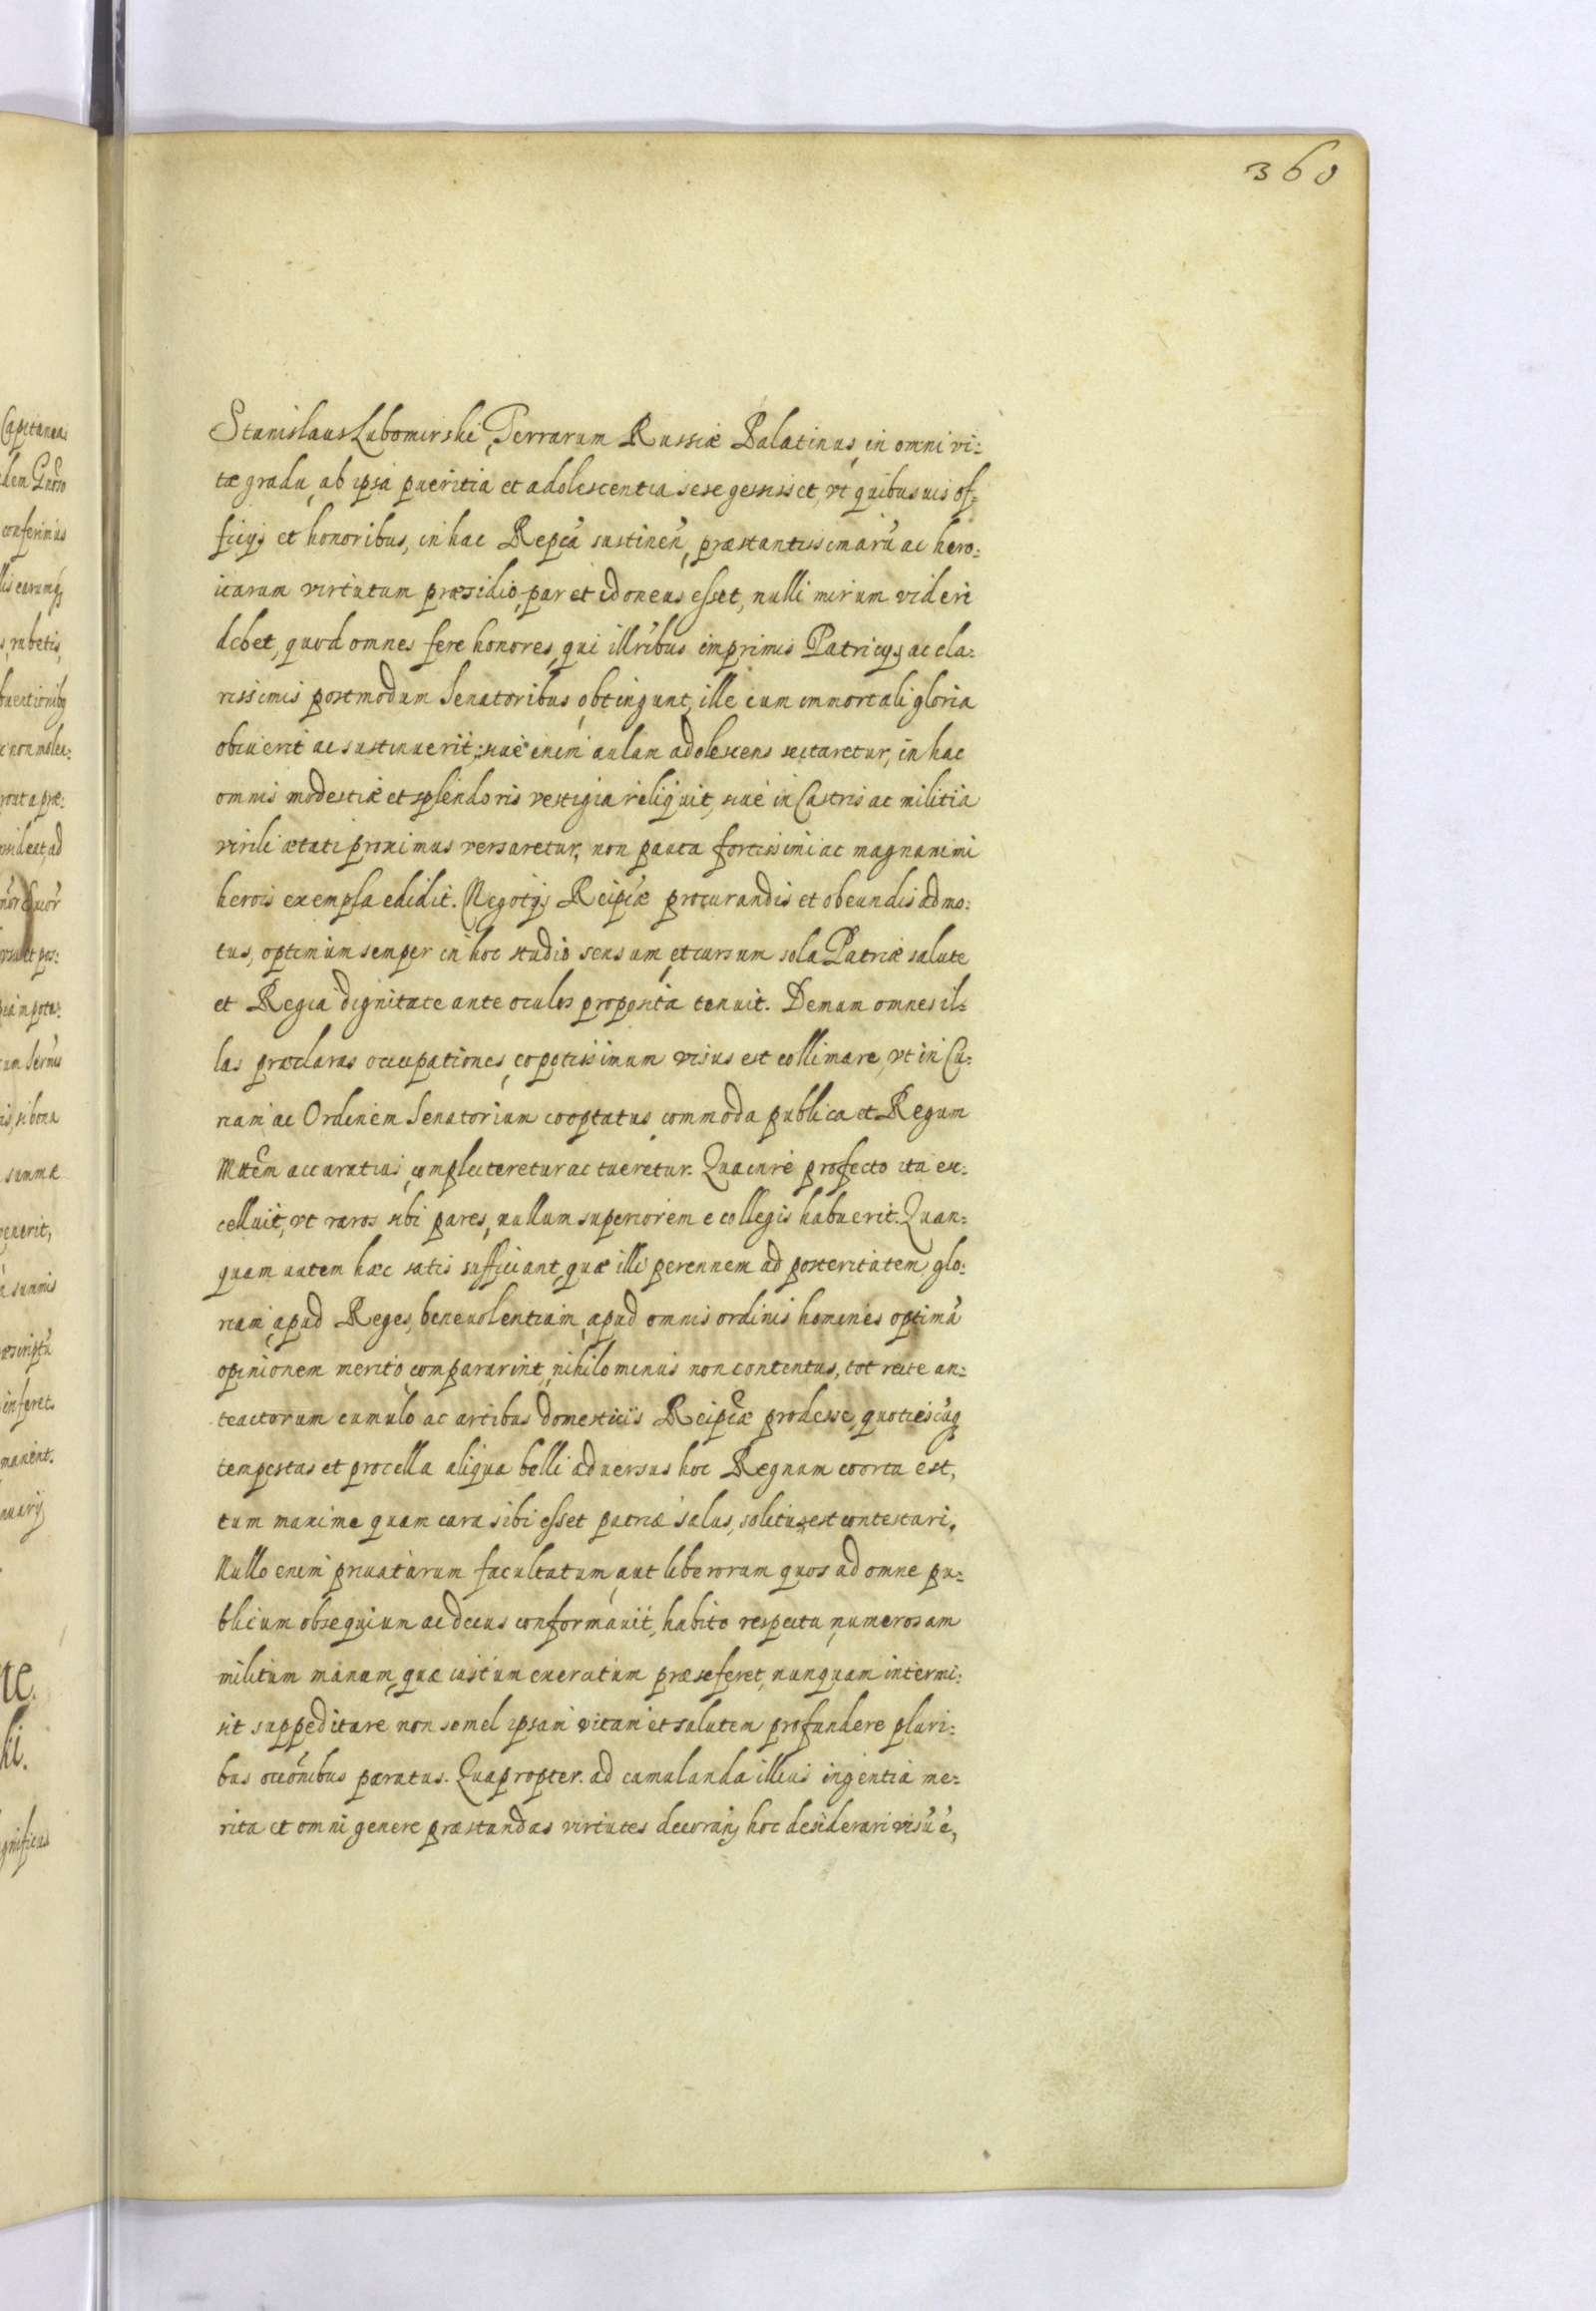 360
Stanislaus Lubomirski, Terrarum Russiæ Palatinus, in omni vi:
tæ gradu, ab ipsa pueritia et adolescentia sese gessisset, vt quibusuis of:
ficijs et honoribus, in hac Repca sustinen, præstantissimarũ ac hero:
icarum virtutum præsidio, par et idoneus esset, nulli mirum videri
debet, quod omnes fere honores, qui illribus imprimis Patricijs ac cla:
rissimis postmodum Senatoribus obtingunt, ille cum immortali gloria
obiuerit ac sustinuerit; siue enim aulam adolescens sectaretur, in hac
omnis modestiæ et splendoris vestigia reliquit, siue in Castris ac militia
virili ætati proximus versaretur, non pauca fortissimi ac magnanimi
herois exempla edidit. Negotijs Reipcæ procurandis et obeundis admo:
tus, optimum semper in hoc studio sensum et cursum sola Patriæ salute
et Regia dignitate ante oculos proposita tenuit. Demum omnes il:
las præclaras occupationes, eo potissimum visus est collimare, vt in Cu:
riam ac Ordinem Senatorium cooptatus, commoda publica et Regum
Mattem accuratius complecteretur ac tueretur. Qua in re profecto ita ex:
celluit, vt raros sibi pares, nullum superiorem e collegis habuerit. Quan:
quam autem hæc satis sufficiant, quæ illi perennem ad posteritatem glo:
riam, apud Reges, beneuolentiam, apud omnis ordinis homines optimã
opinionem merito compararint, nihilominus non contentus, tot recte an:
teactorum cumulo ac artibus domesticis Reipcæ prodesse, quotiescũq
tempestas et procella aliqua belli aduersus hoc Regnum coorta est,
tum maxime quam cara sibi esset patriæ salus, solitus est contestari.
Nullo enim priuatarum facultatum, aut liberorum quos ad omne pu:
blicum obsequium ac decus conformauit, habito respectu, numerosam
militum manum, quæ iustum exercitum præseferet, nunquam intermi:
sit suppeditare non semel ipsam vitam et salutem profundere pluri:
bus occõnibus paratus. Quapropter ad cumulanda illius ingentia me:
rita et omni genere præstandas virtutes decoran, hoc desiderari visũ ẽ,